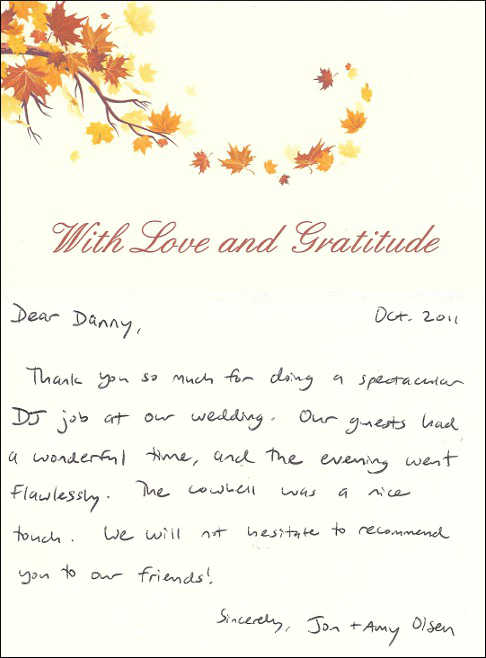 With Love and Gratitude
Dear Danny,
Oct. 2011
Thank you so much for doing a spectacular
DJ job at our wedding. Our guests had
a wonderful time, and the evening went
flawlessly. The cowbell was a nice
touch. We will not hesitate to recommend
you to our friends!
Sincerely, Jon + Amy Olsen